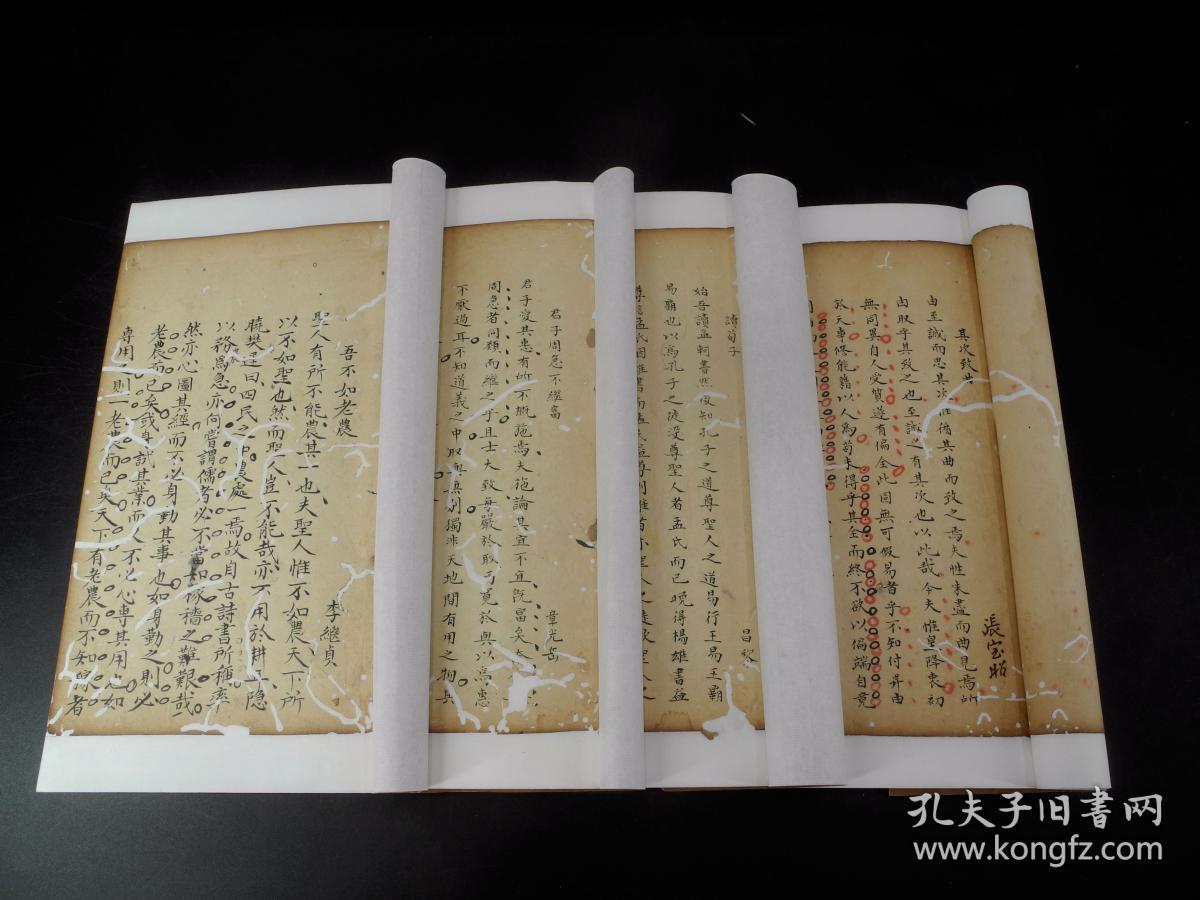 其次致曲
張宝昭
由至誠而思其次惟循其曲而致之焉夫性未盡而曲見焉所
由取乎其致之也至誠之有其次也以此哉今夫惟皇降衷初
無同異自人受質遂有偏全此固無可假易者乎不知付畀由
於天專修能藉以人為苟未得乎其全而終不欲以偏端自竟
讀荀子
昌黎
始吾讀孟軻書然後知孔子之道尊聖人之道易行王易王霸
易霸也以為孔子之徒沒尊聖人者孟氏而已晚得楊雄書益
尊信孟氏因雄書而孟氏益尊則雄者亦聖人之徒歟聖人之
君子周急不繼富
章光岳
君子爰其惠有所不概施焉夫施論其宜不宜既富矣夫
周急者何類而繼之乎且士大致每嚴於取而寬於與以為惠
不厭過耳不知道義之中取與無別獨非天地間有用之物其
吾不如老農
李繼貞
聖人有所不能農其一也夫聖人惟不如農天下所
以不如聖也然而聖人豈不能哉亦不用於耕耳隱
曉樊遲曰四民之中農處一焉故自古詩書所稱率
以務為急亦何嘗謂儒者必不當知稼穡之難艱哉
然亦心圖其經而不必身勤其事也如身勤之則必
老農而已矣或身試其業而人不必心專其用心如
專用之則一老農而已矣天下有老農而不知稼者
孔夫子旧书网
www.kongfz.com